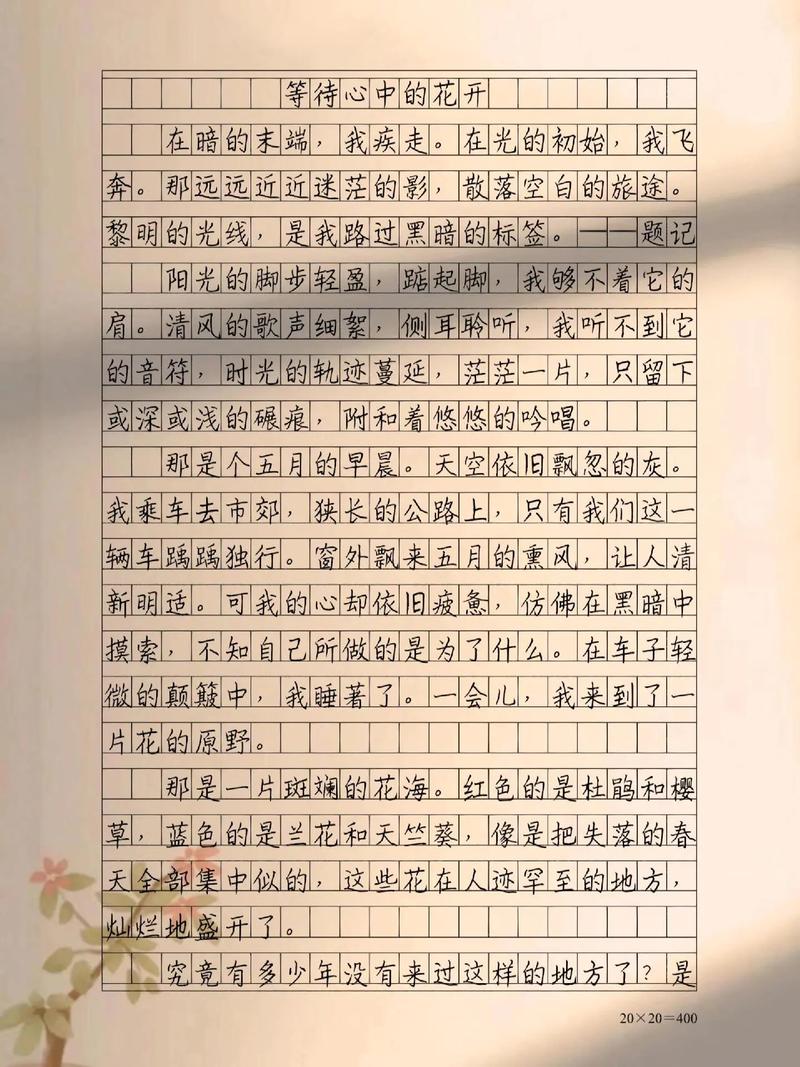 等待心中的花开
在暗的末端，我疾走。在光的初始，我飞
奔。那远远近近迷茫的影，散落空白的旅途。
黎明的光线，是我路过黑暗的标签。——题记
阳光的脚步轻盈，踮起脚，我够不着它的
肩。清风的歌声细絮，侧耳聆听，我听不到它
的音符，时光的轨迹蔓延，茫茫一片，只留下
或深或浅的碾痕，附和着悠悠的吟唱。
那是个五月的早晨。天空依旧飘忽的灰。
我乘车去市郊，狭长的公路上，只有我们这一
辆车踽踽独行。窗外飘来五月的熏风，让人清
新明适。可我的心却依旧疲惫，仿佛在黑暗中
摸索，不知自己所做的是为了什么。在车子轻
微的颠簸中，我睡著了。一会儿，我来到了一
片花的原野。
那是一片斑斓的花海。红色的是杜鹃和樱
草，蓝色的是兰花和天竺葵，像是把失落的春
天全部集中似的，这些花在人迹罕至的地方，
灿烂地盛开了。
究竟有多少年没有来过这样的地方了？是
20×20=400